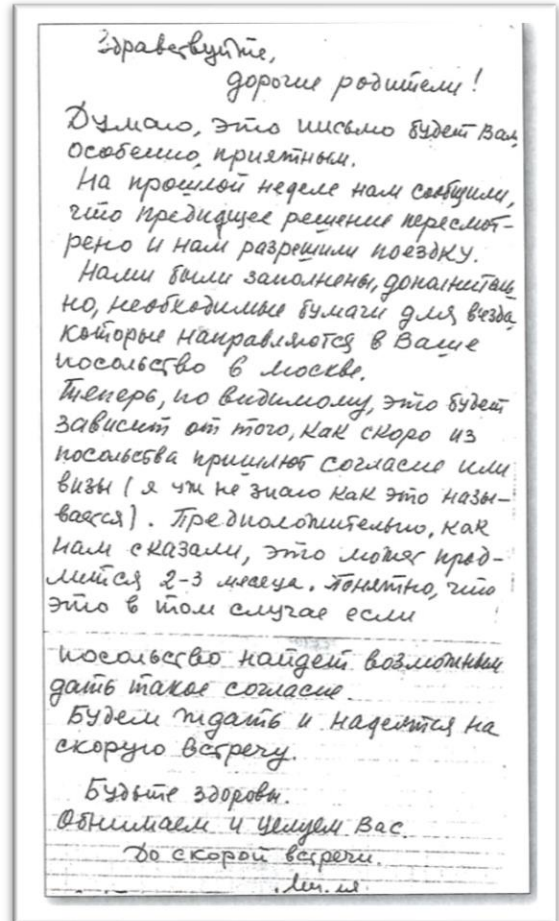 Здравствуйте,
дорогие родители!
Думаю, это письмо будет Вам
особенно приятным.
На прошлой неделе нам сообщили,
что предидущее решение пересмот-
рено и нам разрешили поездку.
Нами были заполнены, дополнитель
но, необходимые бумаги для въезда,
которые направляются в Ваше
посольство в Москве.
Теперь, по видимому, это будет
зависит от того, как скоро из
посольства пришлют согласие или
визы (я уж не знаю как это назы-
вается). Предположительно, как
нам сказали, это может прод-
лится 2-3 месяца. Понятно, что
это в том случае если
посольство найдет возможным
дать такое согласие.
Будем ждать и надеятся на
скорую встречу.
Будьте здоровы.
Обнимаем и целуем Вас.
До скорой встречи.